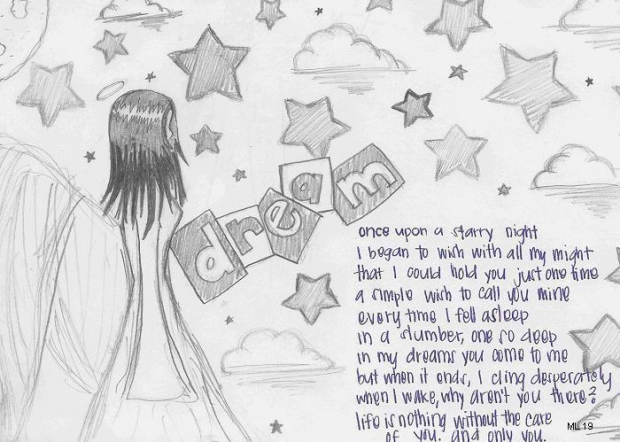 dream
once upon a starry night
I began to wish with all my might
that I could hold you just one time
a simple wish to call you mine
every time I fell asleep
in a slumber, one so deep
in my dreams you come to me
but when it ends, I cling desperately
when I wake, why aren't you there?
life is nothing without the care
of you, and only you
ML 19